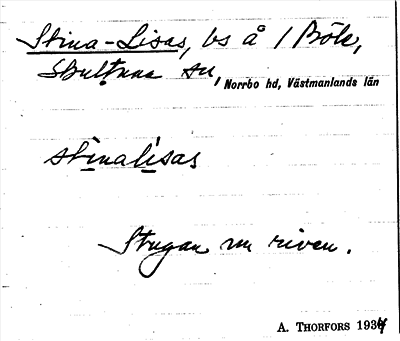 Stina-Lisas, bs å 1 Böle,
Skultuna sn, Norrbo hd, Västmanlands län
stinalisas
Stugan nu riven.
A. THORFORS 1934